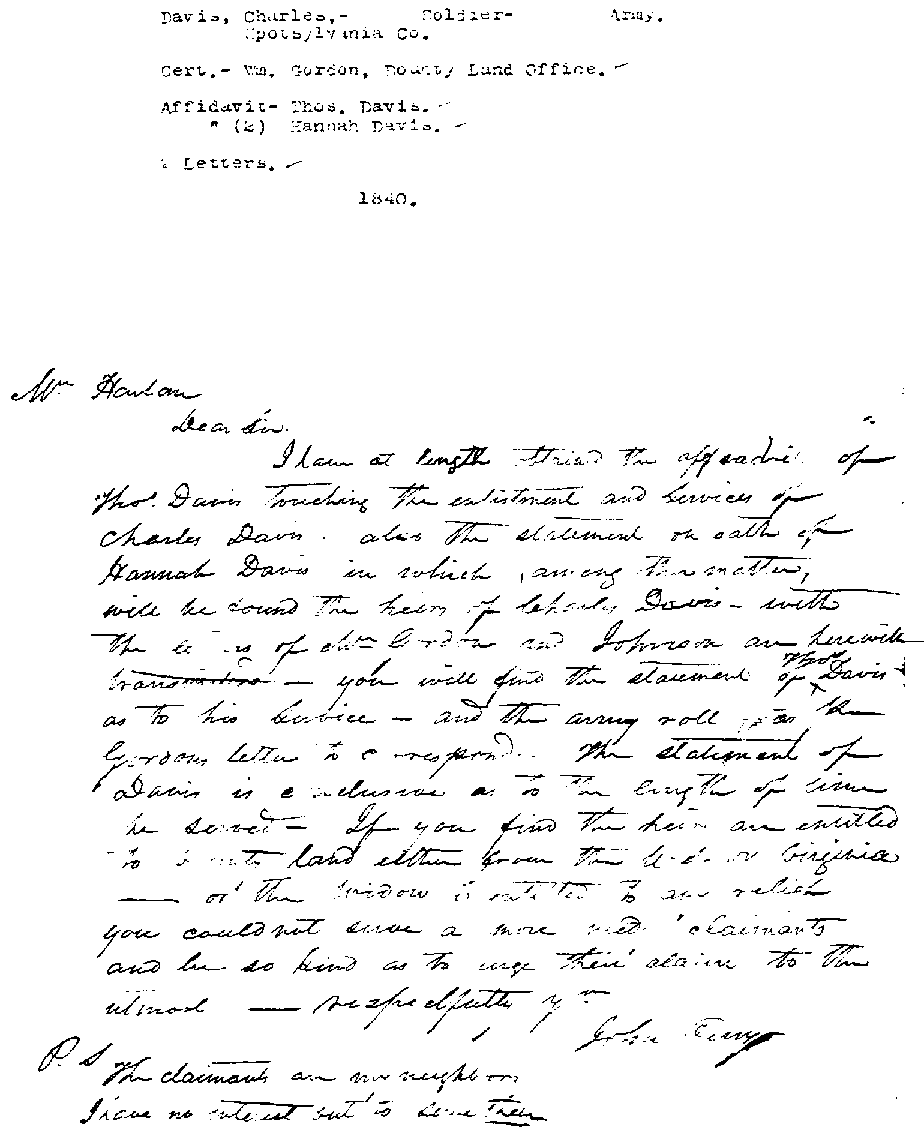 Davis, Charles,- Soldier- Army.
Spotsylvania Co.
Cert.- Wm. Gordon, Bounty Land Office.
Affidavit- Thos. Davis.
" (2) Hannah Davis.
Letters.
1840.
Mr Harlan
Dear Sir.
I have at length the of
Thos. Davis touching the enlistment and Services of
Charles Davis. also the statement on oath of
Hannah Davis in which, among other matter,
will be found the heirs of Charles Davis - with
the of Gordon and Johnson are herewith
— you will find the statement of Thos Davis
as to his Service — and the army roll
Gordons letter to correspond. The statement of
Davis is conclusive as to the length of time
he served — If you find the heirs are entitled
to land either from the U.S. or Virginia
— or the widow is entitled to any relief
you could not serve a more claimants
and be so kind as to urge their claim to the
utmost — respectfully yrs
John
P.S The claimants are my neighbors
I have no interest but to serve them